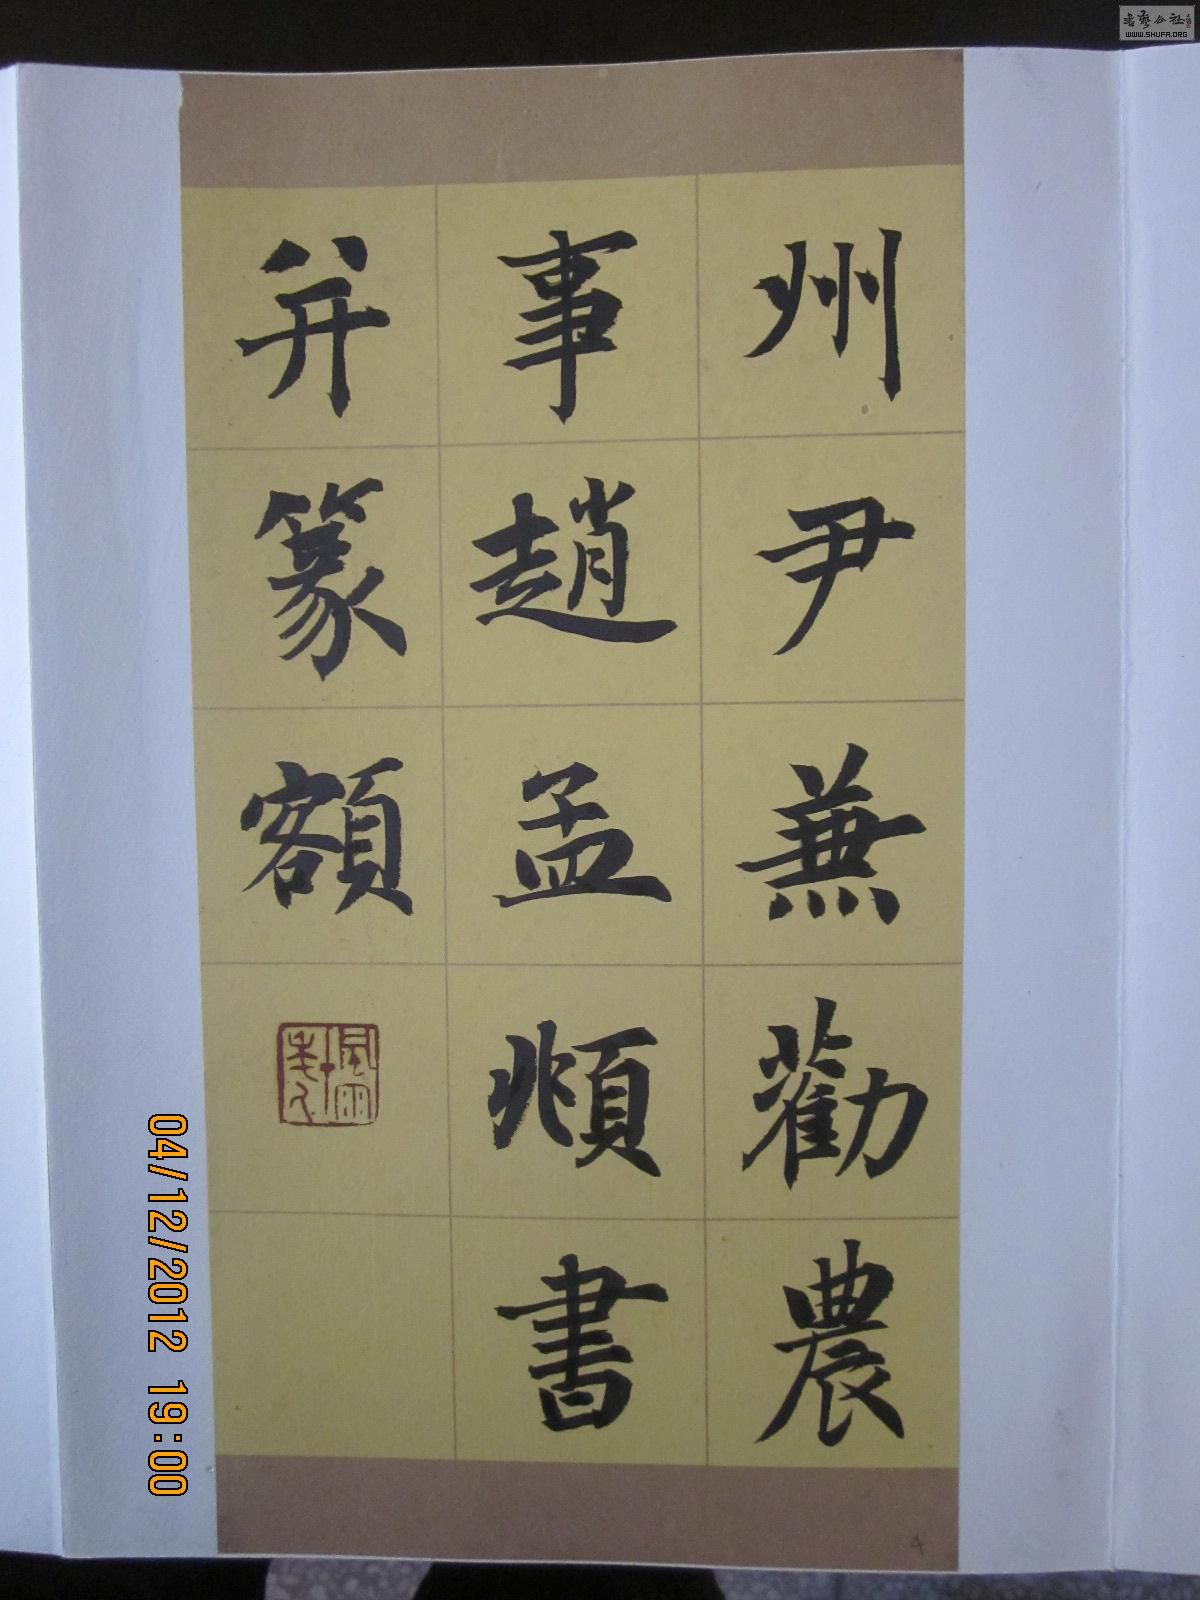 州尹兼勸農
事趙孟頫書
并篆額
04/12/2012 19:00
書藝公社
WWW.SHUFA.ORG
4